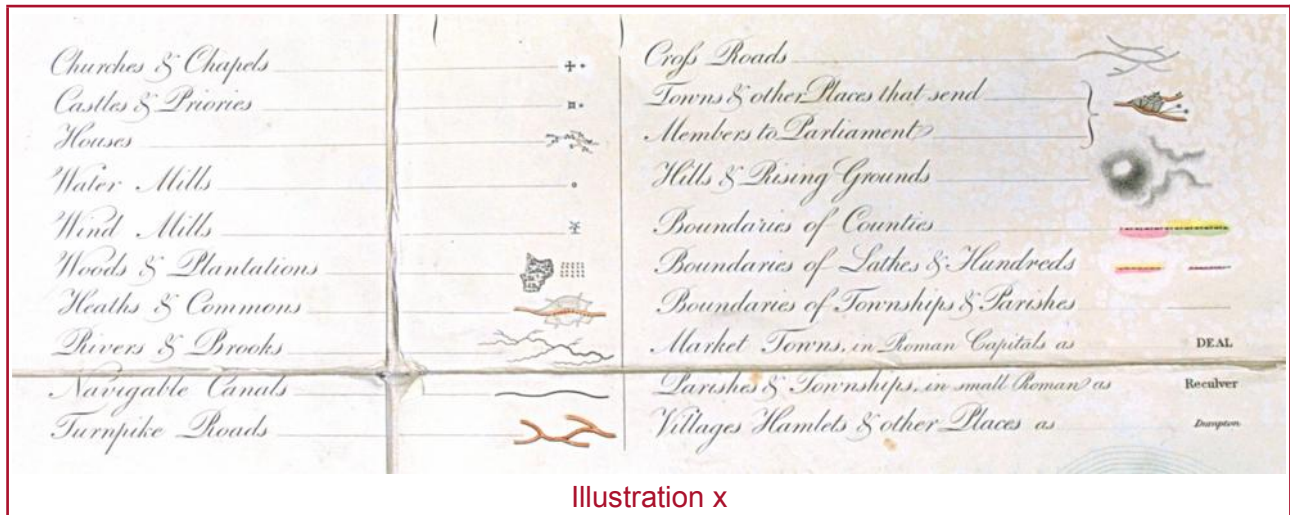 Churches & Chapels
Castles & Priories
Houses
Water Mills
Wind Mills
Woods & Plantations
Heaths & Commons
Rivers & Brooks
Navigable Canals
Turnpike Roads
Croſs Roads
Towns & other Places that send
Members to Parliament
Hills & Rising Grounds
Boundaries of Counties
Boundaries of Lathes & Hundreds
Boundaries of Townships & Parishes
Market Towns, in Roman Capitals as DEAL
Parishes & Townships, in small Roman as Reculver
Villages Hamlets & other Places as Dumpton
Illustration x